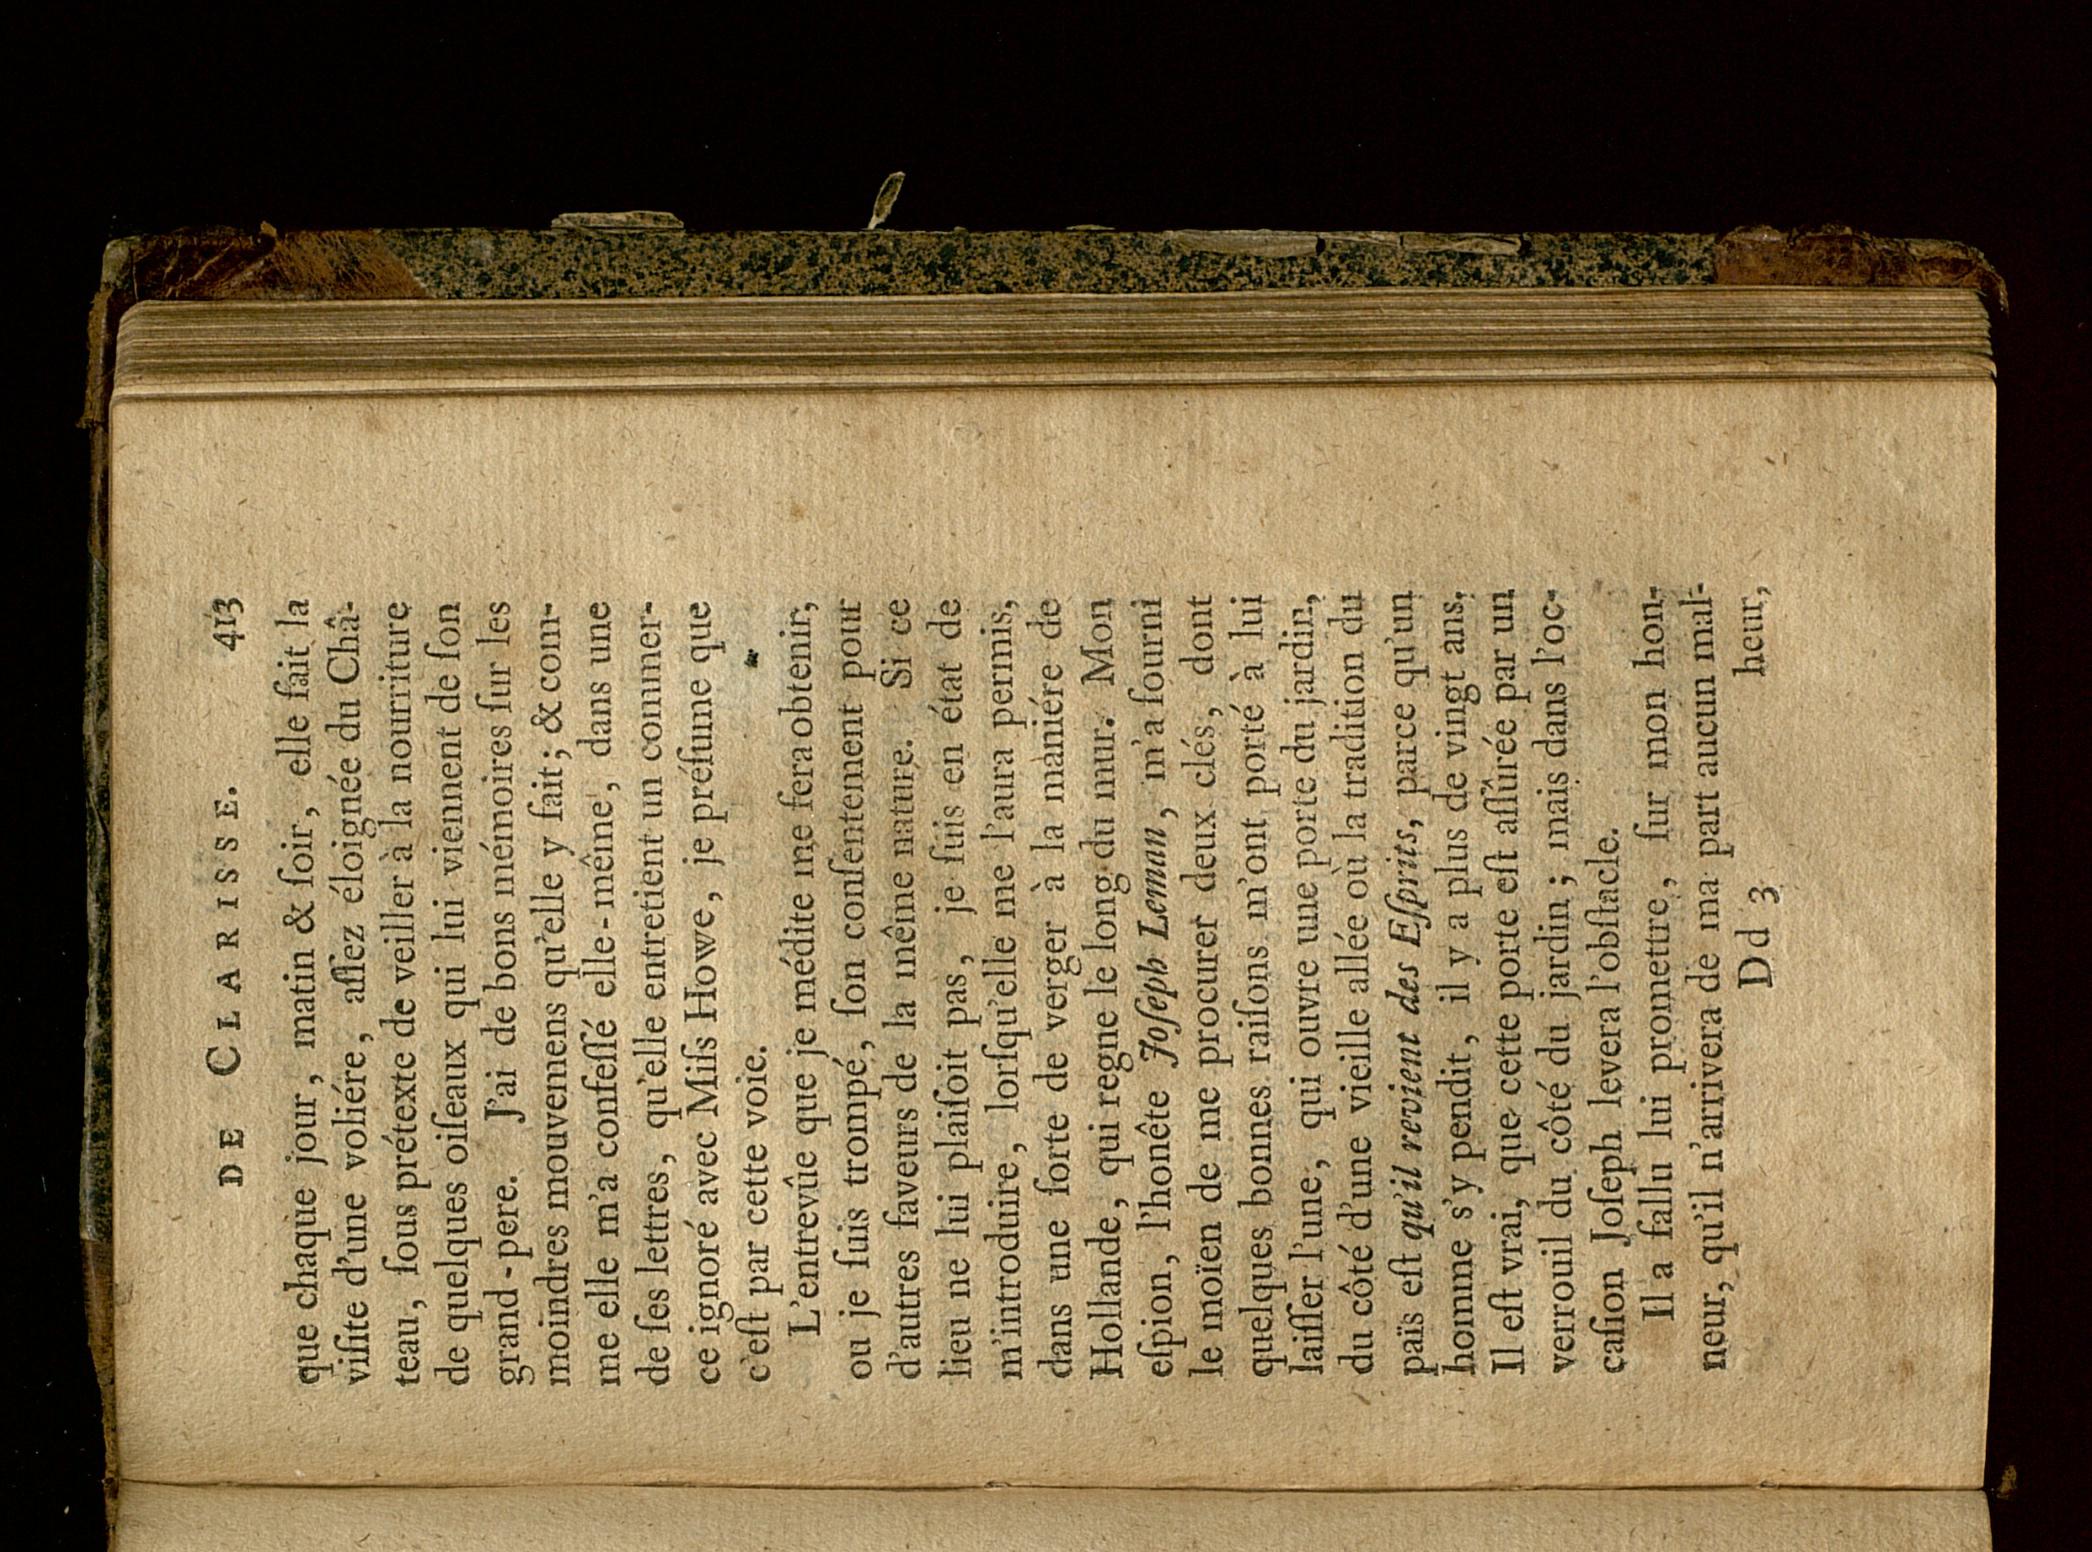 DE CLARISSE. 413
que chaque jour, matin & ſoir, elle fait la
viſite d'une voliére, aſſez éloignée du Châ-
teau, ſous prétexte de veiller à la nourriture
de quelques oiſeaux qui lui viennent de ſon
grand-pere. J'ai de bons mémoires ſur les
moindres mouvemens qu'elle y fait; & com-
me elle m'a confeſſé elle-même, dans une
de ſes lettres, qu'elle entretient un commer-
ce ignoré avec Miſs Howe, je préſume que
c'eſt par cette voie.
L'entrevûe que je médite me fera obtenir,
ou je ſuis trompé, ſon conſentement pour
d'autres faveurs de la même nature. Si ce
lieu ne lui plaiſoit pas, je ſuis en état de
m'introduire, lorſqu'elle me l'aura permis,
dans une ſorte de verger à la maniére de
Hollande, qui regne le long du mur. Mon
eſpion, l'honête Joſeph Leman, m'a fourni
le moïen de me procurer deux clés, dont
quelques bonnes raiſons m'ont porté à lui
laiſſer l'une, qui ouvre une porte du jardin,
du côté d'une vieille allée où la tradition du
païs eſt qu'il revient des Eſprits, parce qu'un
homme s'y pendit, il y a plus de vingt ans.
Il eſt vrai, que cette porte eſt aſſûrée par un
verrouil du côté du jardin; mais dans l'oc-
caſion Joſeph levera l'obſtacle.
Il a fallu lui promettre, ſur mon hon-
neur, qu'il n'arrivera de ma part aucun mal-
Dd 3 heur,